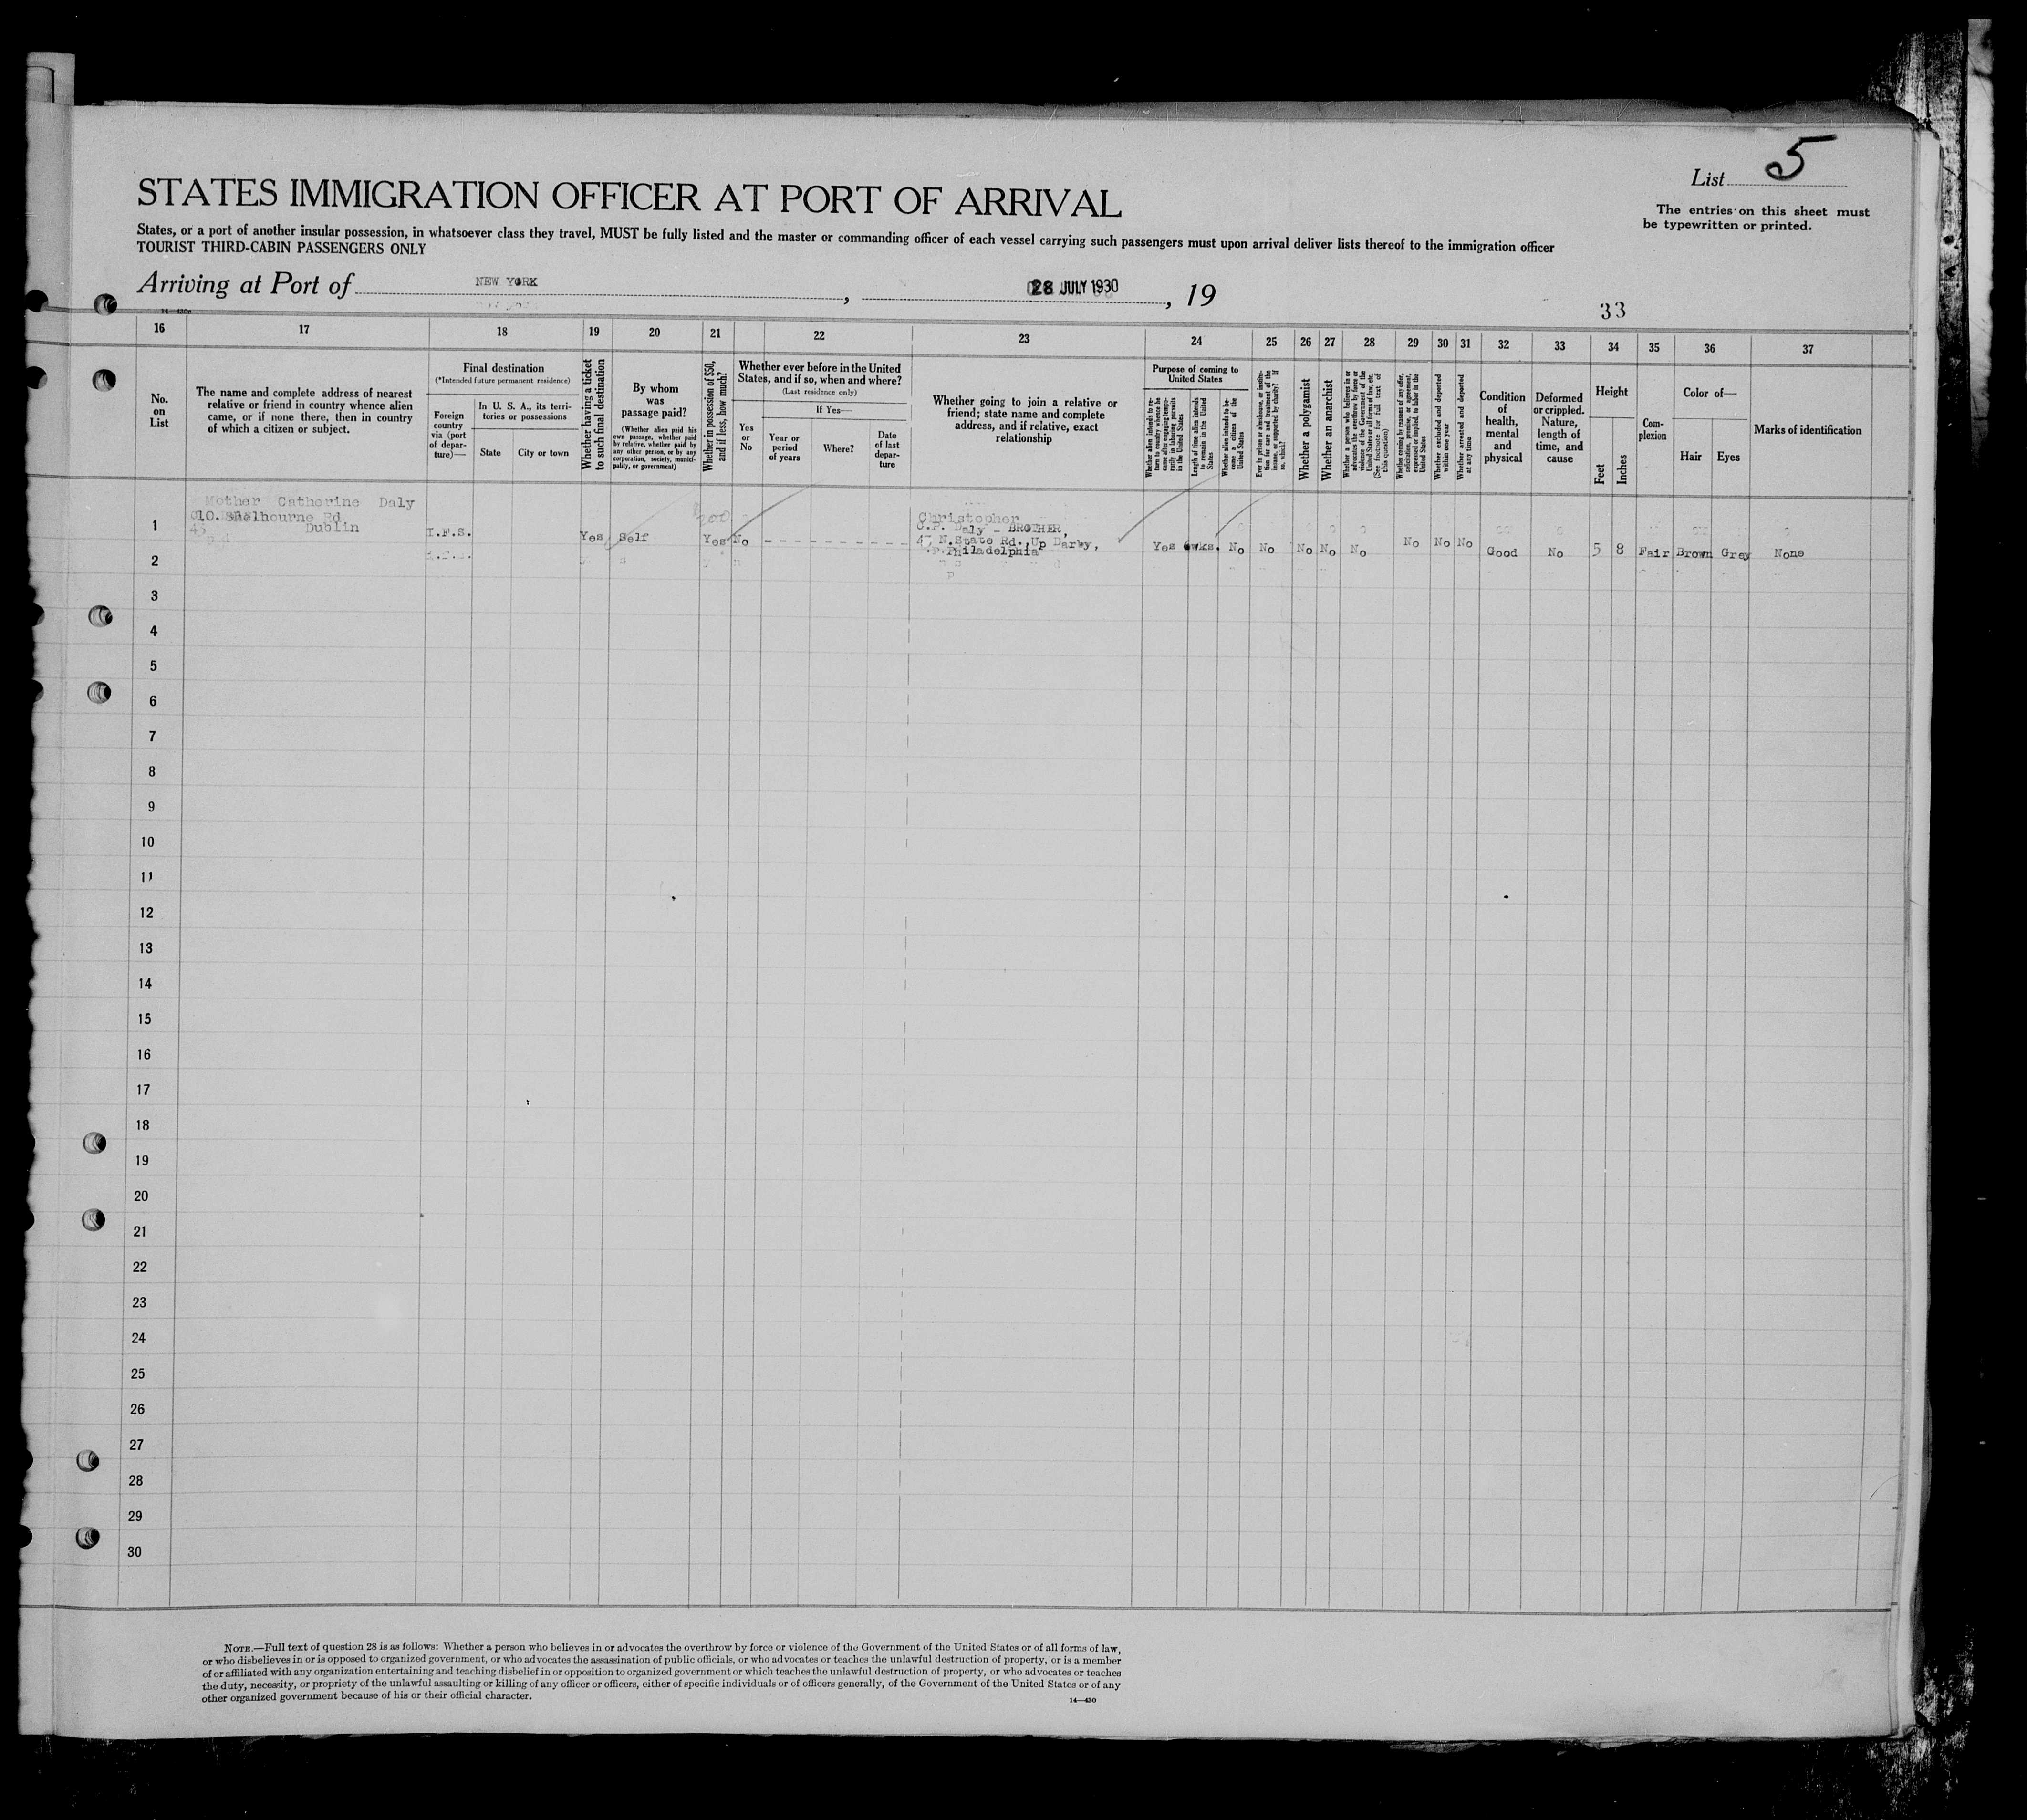 List 5
The entries on this sheet must
be typewritten or printed.
STATES IMMIGRATION OFFICER AT PORT OF ARRIVAL
States, or a port of another insular possession, in whatsoever class they travel, MUST be fully listed and the master or commanding officer of each vessel carrying such passengers must upon arrival deliver lists thereof to the immigration officer
TOURIST THIRD-CABIN PASSENGERS ONLY
Arriving at Port of NEW YORK, 28 JULY 1930, 19
33
14—430a
16 17 18 19 20 21 22 23 24 25 26 27 28 29 30 31 32 33 34 35 36 37
No.
on
List
The name and complete address of nearest
relative or friend in country whence alien
came, or if none there, then in country
of which a citizen or subject.
Final destination
(*Intended future permanent residence)
Foreign
country
via (port
of depar-
ture)—
In U. S. A., its terri-
tories or possessions
State
City or town
Whether having a ticket
to such final destination
By whom
was
passage paid?
(Whether alien paid his
own passage, whether paid
by relative, whether paid by
any other person, or by any
corporation, society, munici-
pality, or government)
Whether in possession of $50,
and if less, how much?
Whether ever before in the United
States, and if so, when and where?
(Last residence only)
Yes
or
No
If Yes—
Year or
period
of years
Where?
Date
of last
depar-
ture
Whether going to join a relative or
friend; state name and complete
address, and if relative, exact
relationship
Purpose of coming to
United States
Whether alien intends to re-
turn to country whence he
came after engaging tempo-
rarily in laboring pursuits
in the United States
Length of time alien intends
to remain in the United
States
Whether alien intends to be-
come a citizen of the
United States
Ever in prison or almshouse, or institu-
tion for care and treatment of the
insane, or supported by charity? If
so, which?
Whether a polygamist
Whether an anarchist
Whether a person who believes in or
advocates the overthrow by force or
violence of the Government of the
United States or all forms of law, etc.
(See footnote for full text of
this question)
Whether coming by reason of any offer,
solicitation, promise, or agreement,
expressed or implied, to labor in the
United States
Whether excluded and deported
within one year
Whether arrested and deported
at any time
Condition
of
health,
mental
and
physical
Deformed
or crippled.
Nature,
length of
time, and
cause
Height
Feet
Inches
Com-
plexion
Color of—
Hair
Eyes
Marks of identification
Mother Catherine Daly
10. Shelbourne Rd
Dublin
1 I.F.S. Yes Self 200 Yes No
Christopher
C.P. Daly - BROTHER,
47 N.State Rd., Up Darby,
Philadelphia
Yes 6wks. No No No No No No No No Good No 5 8 Fair Brown Grey None
2
3
4
5
6
7
8
9
10
11
12
13
14
15
16
17
18
19
20
21
22
23
24
25
26
27
28
29
30
NOTE.—Full text of question 28 is as follows: Whether a person who believes in or advocates the overthrow by force or violence of the Government of the United States or of all forms of law,
or who disbelieves in or is opposed to organized government, or who advocates the assassination of public officials, or who advocates or teaches the unlawful destruction of property, or is a member
of or affiliated with any organization entertaining and teaching disbelief in or opposition to organized government or which teaches the unlawful destruction of property, or who advocates or teaches
the duty, necessity, or propriety of the unlawful assaulting or killing of any officer or officers, either of specific individuals or of officers generally, of the Government of the United States or of any
other organized government because of his or their official character.
14—430